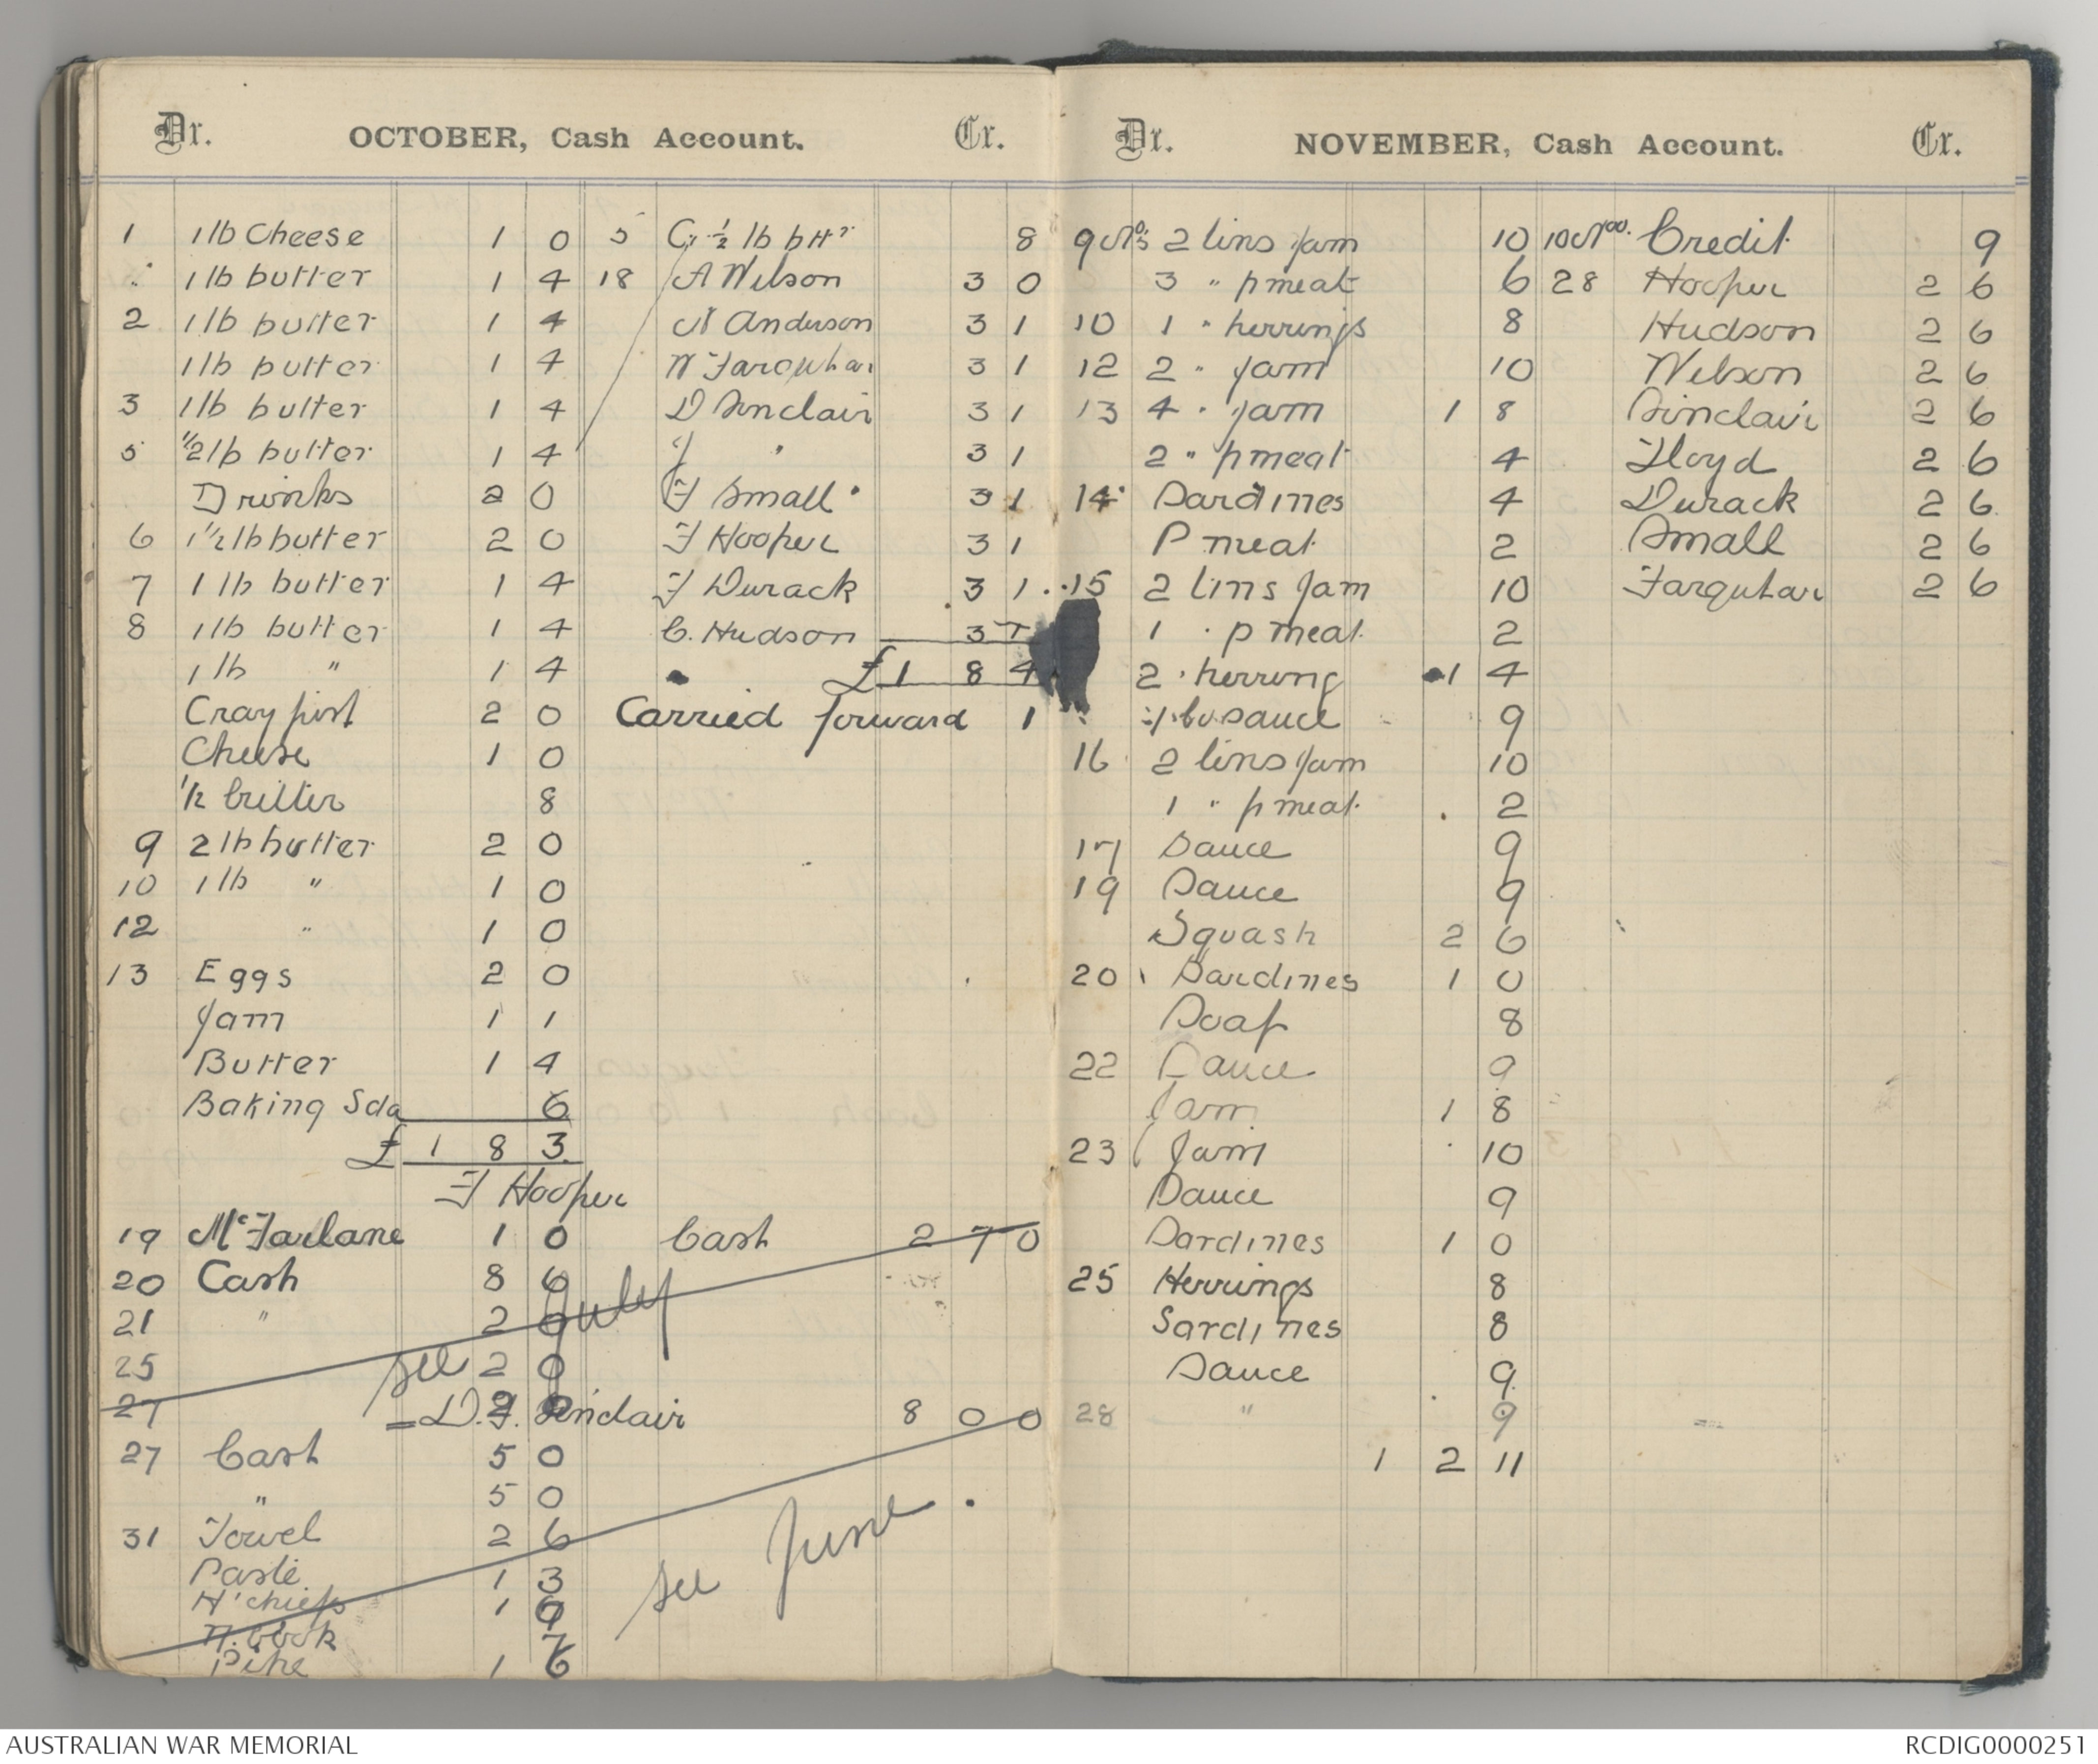 Dr. OCTOBER, Cash Account. Cr.
1 1 lb Cheese 1 0 5 G. ½ lb btr 8
" 1 lb butter 1 4 18 A Wilson 3 0
2 1 lb butter 1 4 N Anderson 3 1
1 lb butter 1 4 W Farquhar 3 1
3 1 lb butter 1 4 D Sinclair 3 1
5 ½ lb butter 1 4 J " 3 1
Drinks 2 0 F Small 3 1
6 1½ lb butter 2 0 F Hooper 3 1
7 1 lb butter 1 4 F Durack 3 1
8 1 lb butter 1 4 C. Hudson 3
1 lb " 1 4 £1 8 4
Cray fish 2 0 Carried forward 1
Cheese 1 0
½ butter 8
9 2 lb butter 2 0
10 1 lb " 1 0
12 " 1 0
13 Eggs 2 0
Jam 1 1
Butter 1 4
Baking Sda 6
£ 1 8 3
F Hooper
19 McFarlane 1 0 Cash 2 7 0
20 Cash 8 6
21 " 2 0
see July
25 2 0
27 D. J. Sinclair 8 0 0
27 Cash 5 0
" 5 0
31 Towel 2 6
Paste 1 3
H'chiefs 1
N. book
Pipe 1 6
see June.
Dr. NOVEMBER, Cash Account. Cr.
9 2 tins Jam 10 10 Credit 9
3 " p meat 6 28 Hooper 2 6
10 1 " herrings 8 Hudson 2 6
12 2 " Jam 10 Wilson 2 6
13 4 " Jam 1 8 Sinclair 2 6
2 " p meat 4 Lloyd 2 6
14 Sardines 4 Durack 2 6
P meat 2 Small 2 6
15 2 tins Jam 10 Farquhar 2 6
1 " p meat 2
2 " herring 1 4
sauce 9
16 2 tins Jam 10
1 " p meat 2
17 Sauce 9
19 Sauce 9
Squash 2 6
20 Sardines 1 0
Soap 8
22 Sauce 9
Jam 1 8
23 Jam 10
Sauce 9
Sardines 1 0
25 Herrings 8
Sardines 8
Sauce 9
28 " 9
1 2 11
AUSTRALIAN WAR MEMORIAL RCDIG0000251